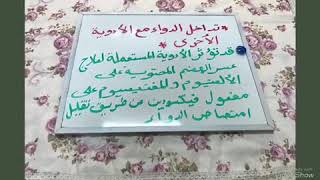 * تداخل الدواء مع الأدوية
الأخرى *
قد تؤثر الأدوية المستعملة لعلاج
عسر الهضم المحتوية على
الألمنيوم والمغنيسيوم على
مفعول فيكسودين عن طريق تقليل
امتصاص الدواء